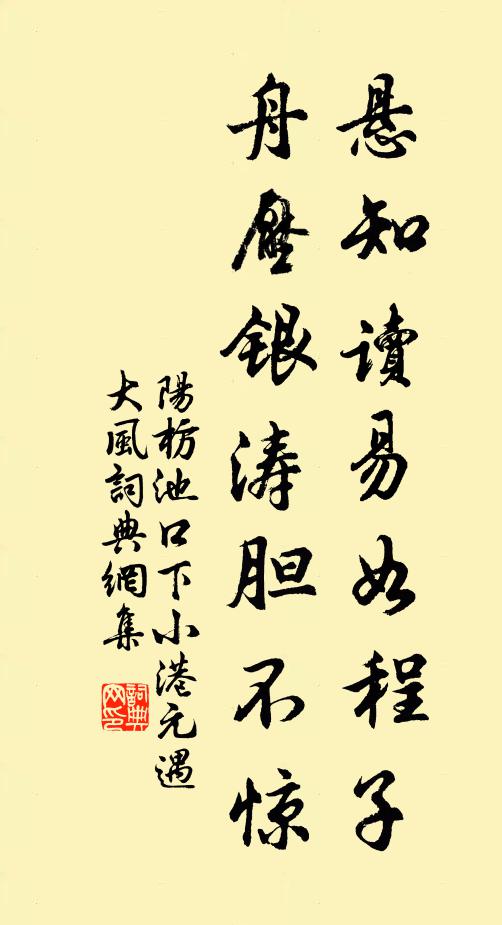 悬知讀易如程子
舟壓银涛胆不惊
陽枋池口下小港元遇
大風詞典網集
詞典网印